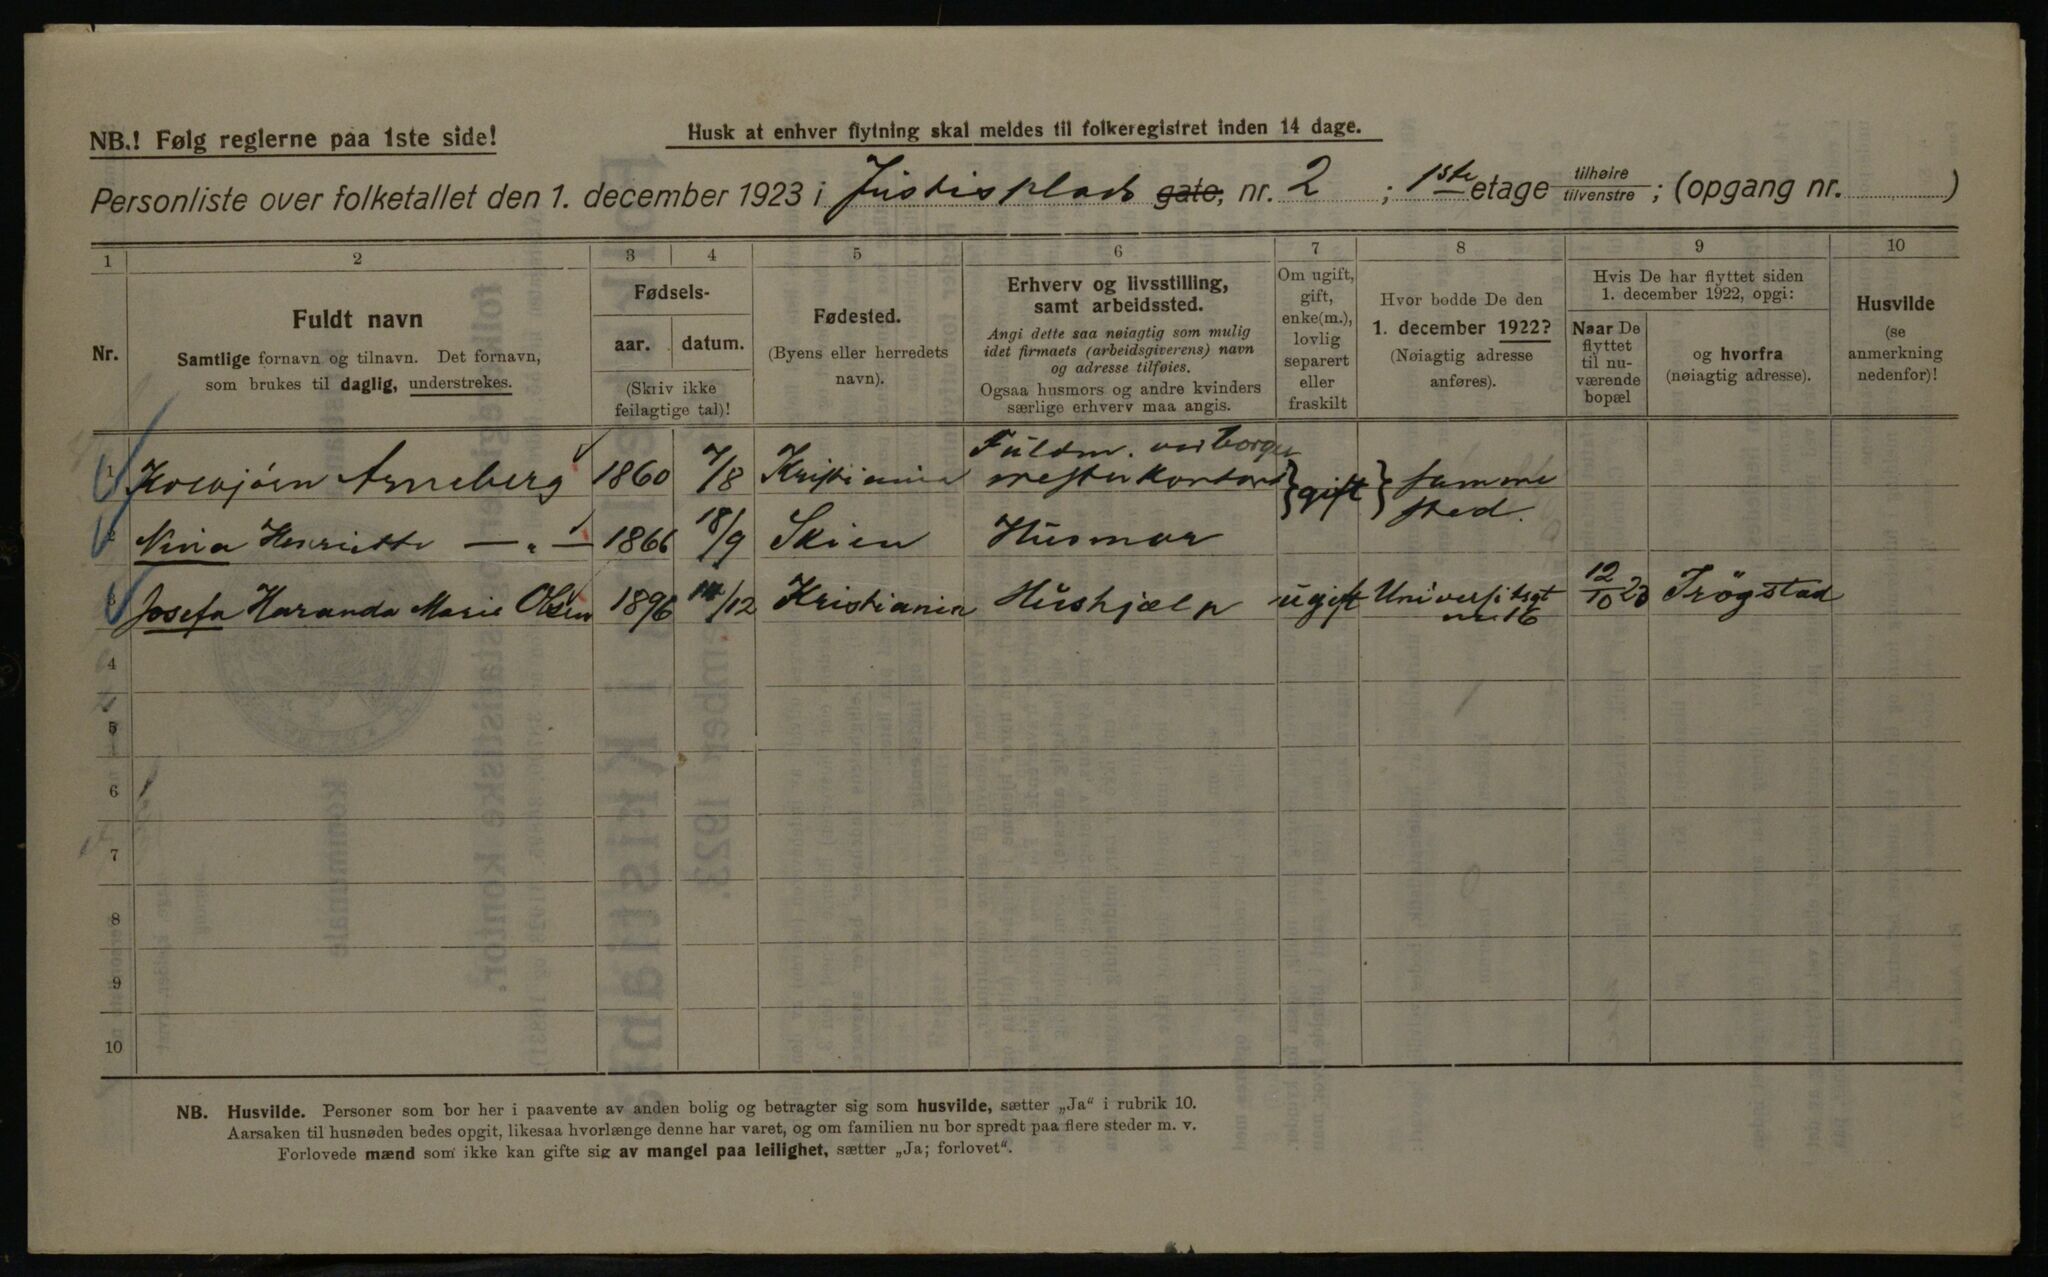 NB.! Følg reglerne paa 1ste side!
Husk at enhver flytning skal meldes til folkeregistret inden 14 dage.
Personliste over folketallet den 1. december 1923 i Justisplads gate, nr. 2 ; 1ste etage tilhøire tilvenstre ; (opgang nr. )
1 2 3 4 5 6 7 8 9 10
Nr.
Fuldt navn
Samtlige fornavn og tilnavn. Det fornavn,
som brukes til daglig, understrekes.
Fødsels-
aar. datum.
(Skriv ikke
feilagtige tal)!
Fødested.
(Byens eller herredets
navn).
Erhverv og livsstilling,
samt arbeidssted.
Angi dette saa nøiagtig som mulig
idet firmaets (arbeidsgiverens) navn
og adresse tilføies.
Ogsaa husmors og andre kvinders
særlige erhverv maa angis.
Om ugift,
gift,
enke(m.),
lovlig
separert
eller
fraskilt
Hvor bodde De den
1. december 1922?
(Nøiagtig adresse
anføres).
Hvis De har flyttet siden
1. december 1922, opgi:
Naar De
flyttet
til nu-
værende
bopæl
og hvorfra
(nøiagtig adresse).
Husvilde
(se
anmerkning
nedenfor)!
1 Arneberg 1860 7/8 Kristiania Fuldm. ved borger
mesterkontoret } gift } samme
sted.
2 Nina Henriette — „ — 1866 18/9 Skien Husmor
3 Josefa Haranda Marie Olsen 1896 /12 Kristiania Hushjælp ugift Universitsgt
nr. 16 12/10 23 Trøgstad
4
5
6
7
8
9
10
NB. Husvilde. Personer som bor her i paavente av anden bolig og betragter sig som husvilde, sætter „Ja“ i rubrik 10.
Aarsaken til husnøden bedes opgit, likesaa hvorlænge denne har varet, og om familien nu bor spredt paa flere steder m. v.
Forlovede mænd som ikke kan gifte sig av mangel paa leilighet, sætter „Ja; forlovet“.